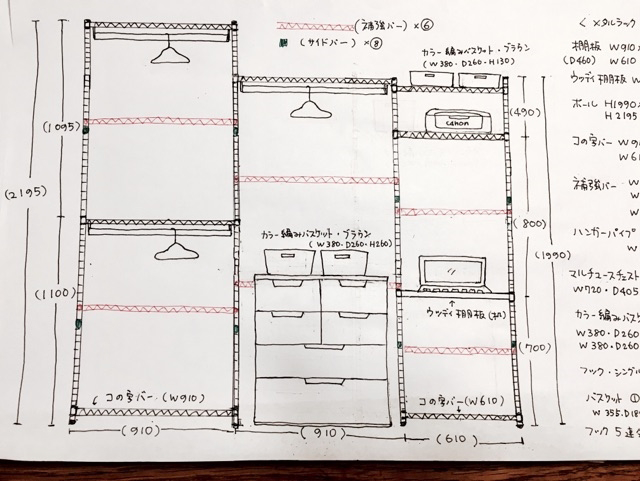 (補強バー) ×⑥
(サイドバー) ×⑧
カラー編みバスケット・ブラウン
(W380・D260・H130)
(490)
canon
(1095)
(2195)
(800)
(1990)
カラー編みバスケット・ブラウン
(W380・D260・H260)
(1100)
ウッディ棚板(机)
(700)
コの字バー (W910)
コの字バー(W610)
(910)
(910)
(610)
< メタルラック
棚板 W910
(D460) W610
ウッディ棚板 W
ポール H1990
H2195
コの字バー W9
W6
補強バー W
W
ハンガーパイプ
W
マルチユースチェスト
W720・D405
カラー編みバスケ
W380・D260
W380・D260
フック・シングル
バスケット ①
W355.D18
フック5連